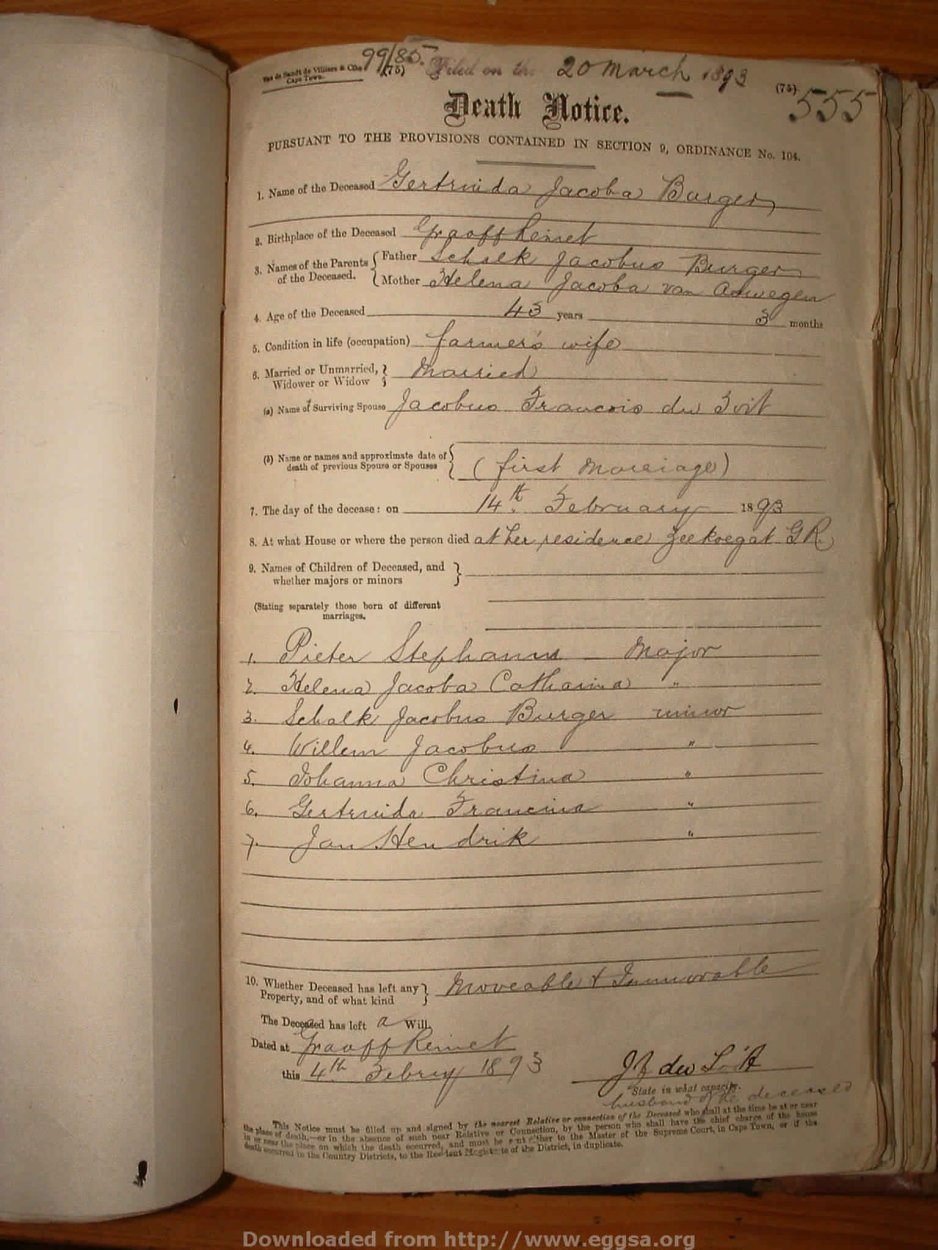 Van de Sandt de Villiers & Co.
Cape Town.
99/85. (75) Filed on the 20 March 1893
(75) 555
Death Notice.
PURSUANT TO THE PROVISIONS CONTAINED IN SECTION 9, ORDINANCE No. 104.
1. Name of the Deceased Gertruida Jacoba Burger
2. Birthplace of the Deceased Graaff Reinet
3. Names of the Parents of the Deceased. { Father Schalk Jacobus Burger
Mother Helena Jacoba van Aswegen
4. Age of the Deceased 43 years 3 months
5. Condition in life (occupation) farmer's wife
6. Married or Unmarried, Widower or Widow } Married
(a) Name of Surviving Spouse Jacobus Francois du Toit
(b) Name or names and approximate date of death of previous Spouse or Spouses { (first marriage)
7. The day of the decease: on 14th February 1893
8. At what House or where the person died at her residence Zeekoegat GR
9. Names of Children of Deceased, and whether majors or minors }
(Stating separately those born of different marriages.
1. Pieter Stephanus - Major
2. Helena Jacoba Catharina "
3. Schalk Jacobus Burger minor
4. Willem Jacobus "
5. Johanna Christina "
6. Gertruida Francina "
7. Jan Hendrik "
10. Whether Deceased has left any Property, and of what kind } Moveable & Immovable
The Deceased has left a Will.
Dated at Graaff Reinet
this 4th Febry 1893
JF du Toit
State in what capacity.
husband of the deceased
This Notice must be filled up and signed by the nearest Relative or connection of the Deceased who shall at the time be at or near
the place of death,—or in the absence of such near Relative or Connection, by the person who shall have the chief charge of the house
in or near the place on which the death occurred, and must be sent either to the Master of the Supreme Court, in Cape Town, or if the
death occurred in the Country Districts, to the Resident Magistrate of the District, in duplicate.
Downloaded from http://www.eggsa.org